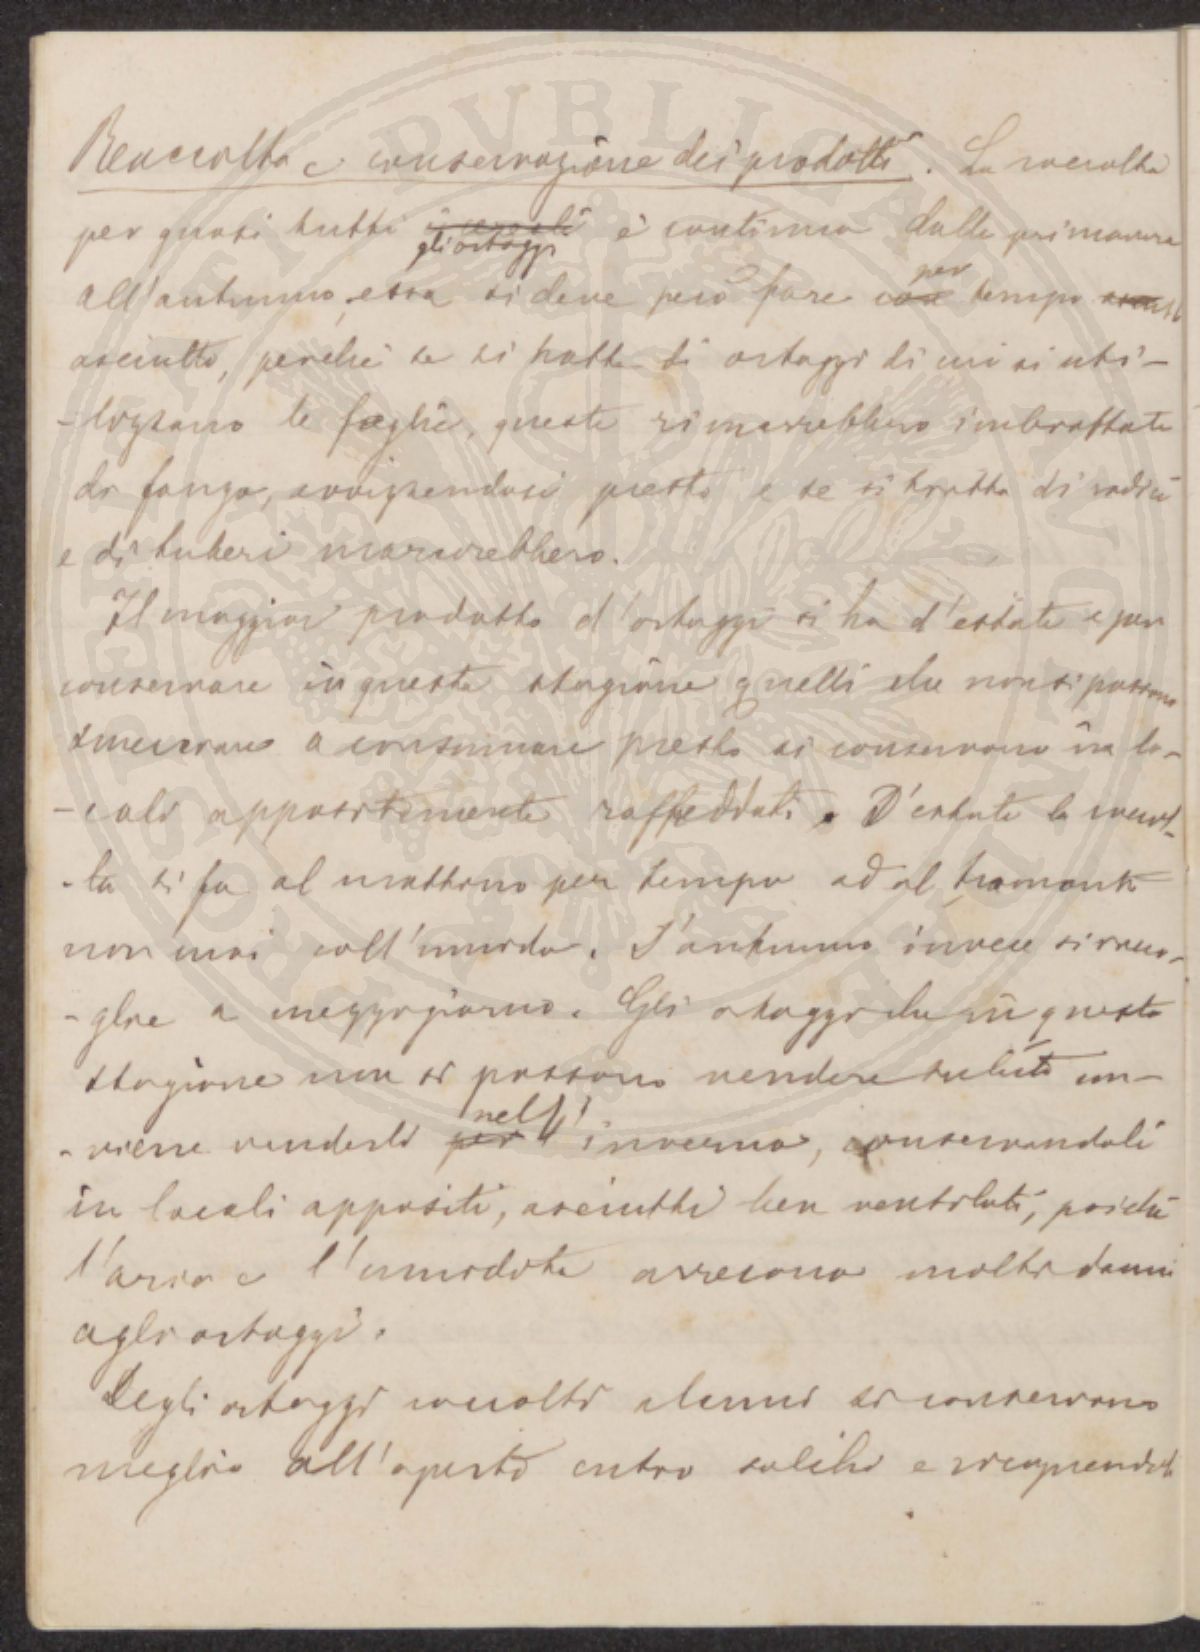 Raccolta e conservazione dei prodotti. La raccolta
per quasi tutti i cereali gli ortaggi è continua dalla primavera
all'autunno, essa si deve però fare con per tempo
asciutto, perchè se si tratta di ortaggi di cui si uti-
-lizzano le foglie, queste rimarrebbero imbrattate
di fango, avvizzendosi presto e se si tratta di radici
e di tuberi marcirebbero.
Il maggior prodotto d'ortaggi si ha d'estate e per
conservare in questa stagione quelli che non si possono
smerciare o consumare presto si conservano in lo-
-cali appositamente raffeddati. D'estate la raccol-
-ta si fa al mattino per tempo od al tramonto
non mai coll'umido. L'autunno invece si racco-
-glie a mezzogiorno. Gli ortaggi che in questa
stagione non si possono vendere subito con-
-viene venderli per nell'inverno, conservandoli
in locali appositi, asciutti ben ventilati, poichè
l'aria e l'umidità arrecano molti danni
agli ortaggi.
Degli ortaggi raccolti alcuni si conservano
meglio all'aperto entro solchi e ricoprendoli
PUBLICA